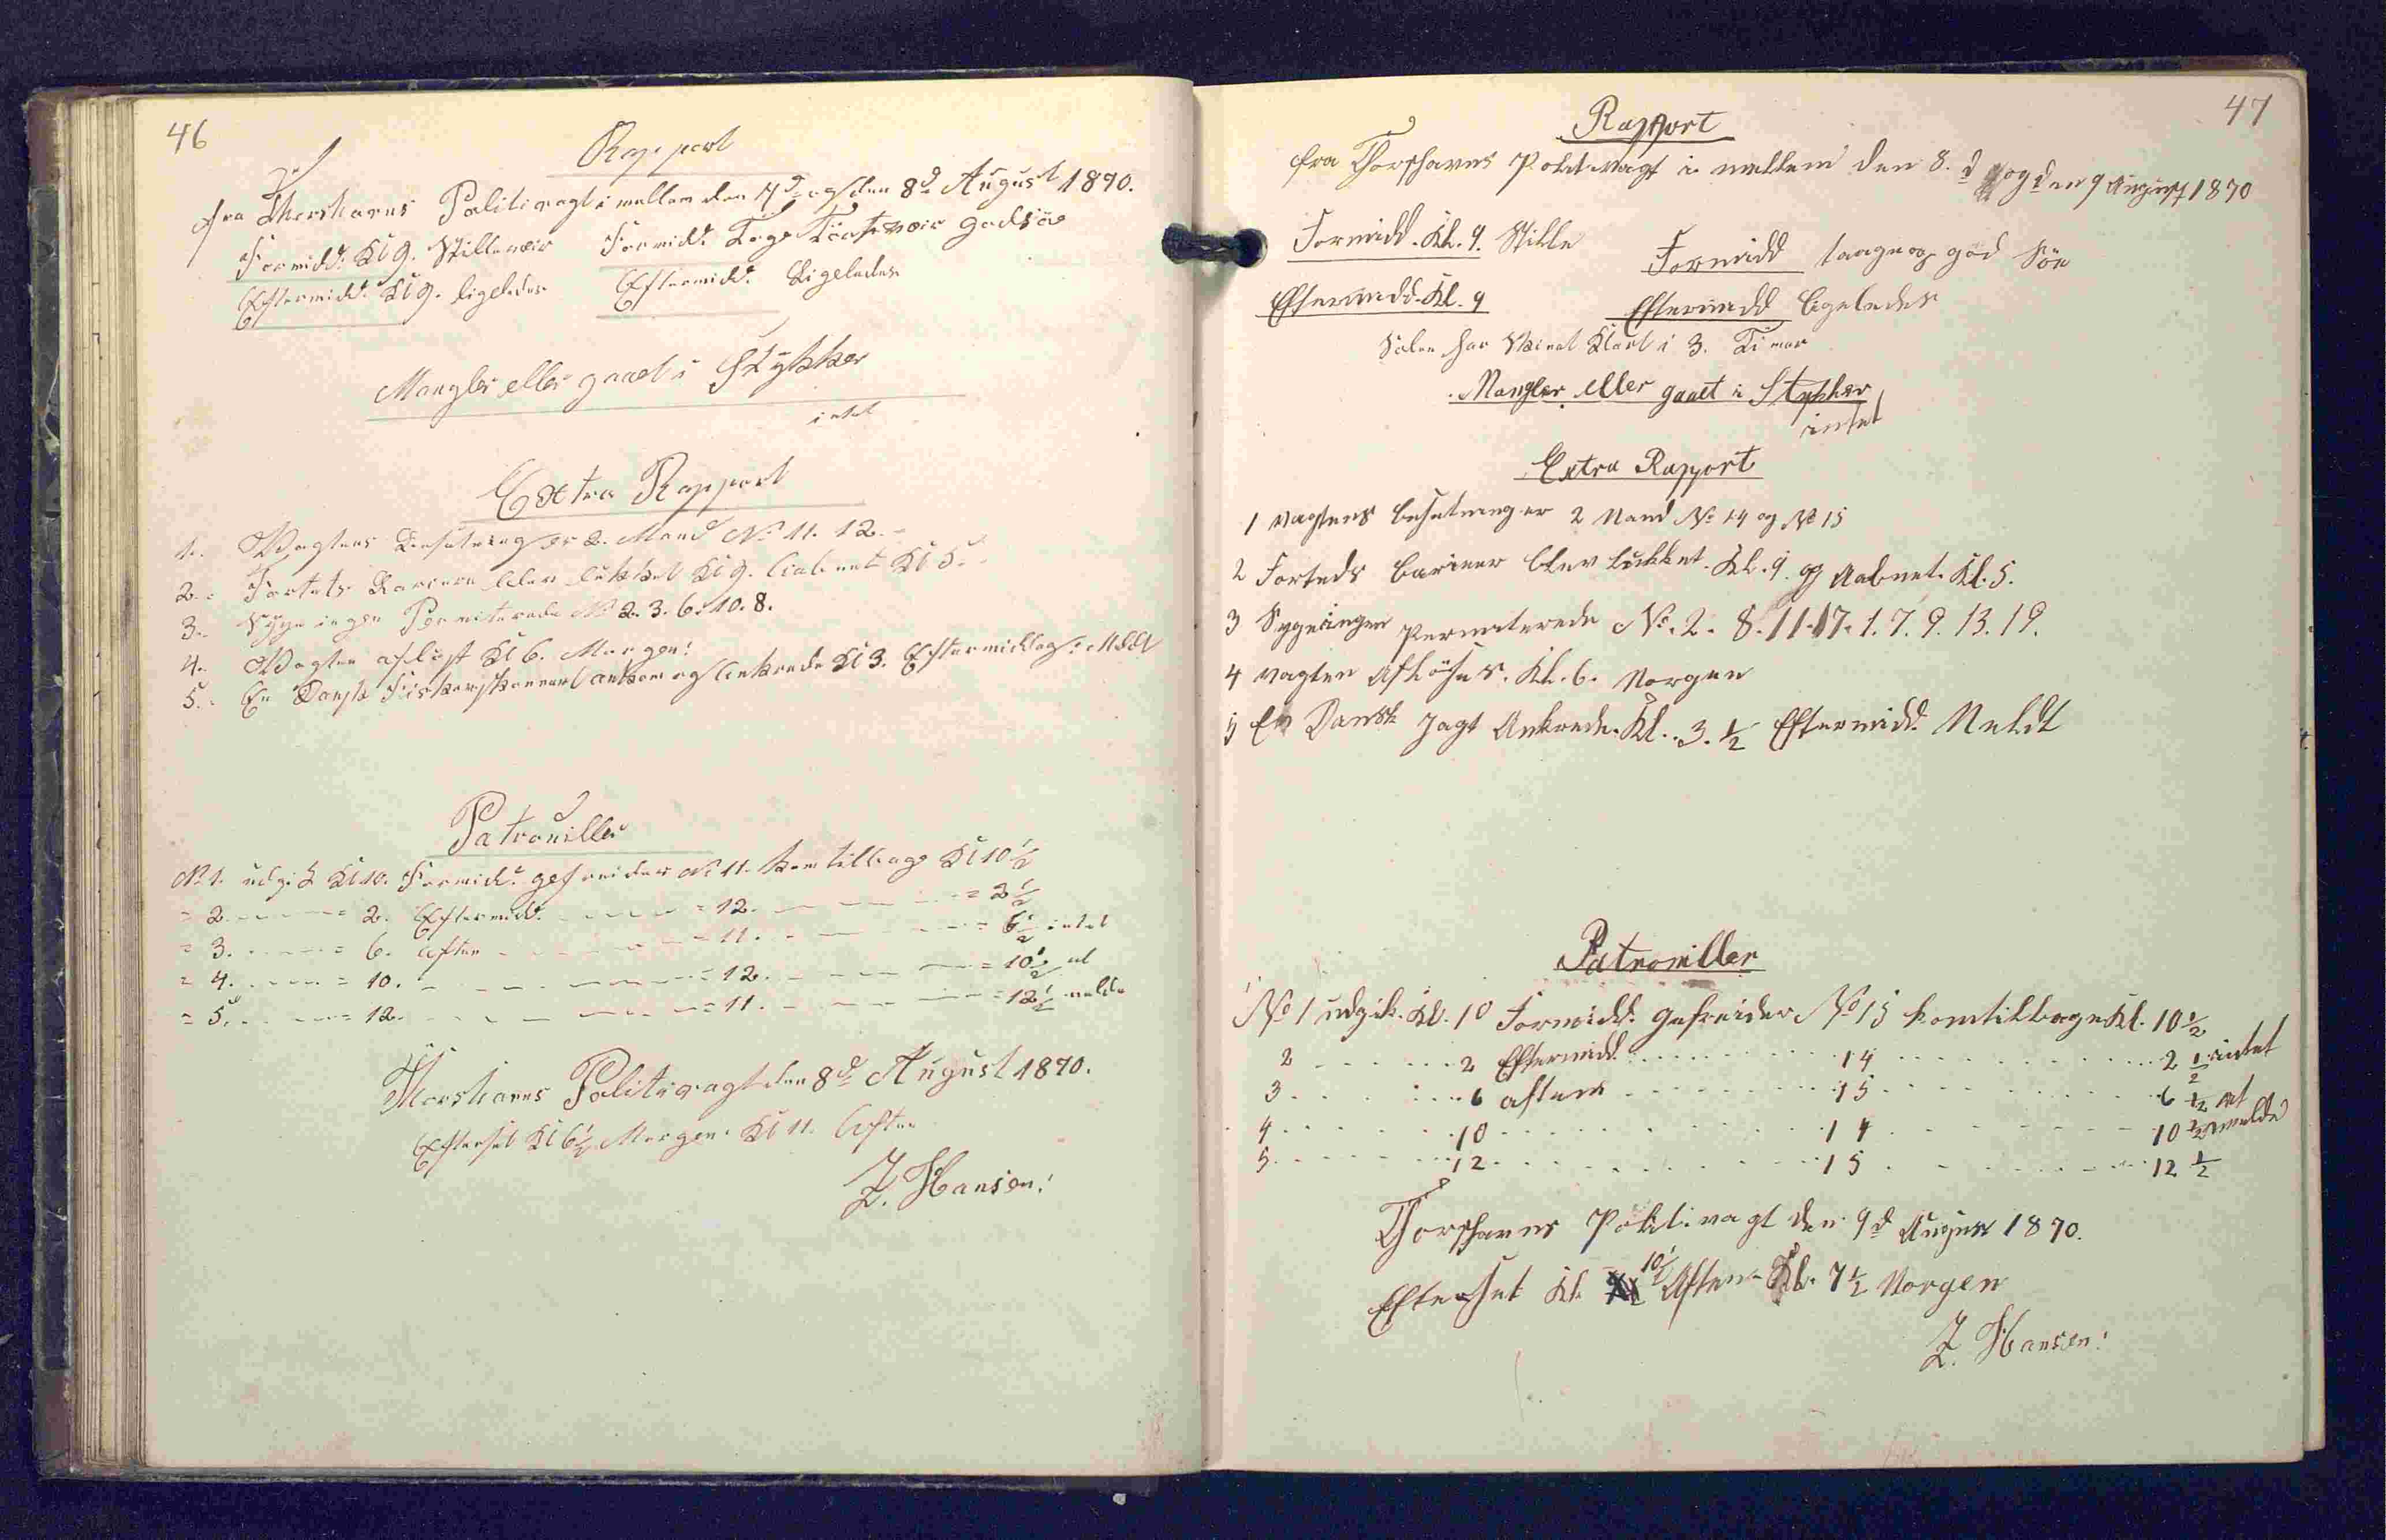 46
Rapport
fra Thorshavns Politivagt i mellem den 7d og den 8d August 1870.
Formidd. Kl 9. Stilleveir Formidd. Taage Tört veir godsöe
Eftermidd. Kl 9. ligeledes Eftermidd. Ligeledes
Mangler eller gaaet i Stykker
intet
Extra Rapport
1. Vagtens Besetning er 2. Mand No 11. 12.
2. Fortets Bariere blev lukket Kl 9. Aabnet Kl 5.
3. Syge ingen Permiterede No 2. 3. 6. 10. 8.
4. Vagten aflöst Kl 6. Morgen!
5. En Dansk Fiskerskonnert ankom og Ankrede Kl 3. Eftermiddag. Meldt
Patrouiller
No 1. udgik Kl 10. Formidd. gefreider No 11. kom tilbage Kl 10 1/2
= 2. - - - = 2. Eftermidd. - - - = 12. - - - = 2 1/2
= 3. - - - = 6. Aften - - - = 11. - - - = 6 1/2 intet
= 4. - - - = 10. - - - = 12. - - - = 10 1/2 at
= 5. - - - = 12. - - - = 11. - - - = 12 1/2 melde
Thorshavns Politivagt den 8d August 1870.
Efterset Kl 6 1/2 Morgen. Kl 11. Aften
Z. Hansen!
47
Rapport
fra Thorshavns Politivagt i mellem den 8. d og den 9 August 1870
Formidd. Kl. 9. Stille Formidd taage og god Söe
Eftermidd. Kl. 9 Eftermidd ligeledes
Solen har Skinet Klart i 3. Timer
Mangler eller gaaet i Stykker
intet
Extra Rapport
1 Vagtens besetning er 2 Mand No 14 og No 15
2 Forteds barieer blev lukket. Kl. 9. og Aabnet. Kl. 5.
3 Syge ingen Permiterede No. 2. 8. 11. 17. 1. 7. 9. 13. 19.
4 Vagten Aflöses. Kl. 6. Morgen
5 En Dansk Jagt Ankrede. Kl. 3. 1/2 Eftermidd. Meldt
Patrouiller
No 1 udgik. Kl. 10 Formidd. gefreider No 15 kom tilbage Kl. 10 1/2
2 - - - 2 Eftermidd - - - 14 - - - 2 1/2 intet
3 - - - 6 aften - - - 15 - - - 6 1/2 at
4 - - - 10 - - - 14 - - - 10 1/2 melde
5 - - - 12 - - - 15 - - - 12 1/2
Thorshavns Politivagt den 9d August 1870.
Efterset Kl. 10 1/2 Aften Kl. 7 1/2 Morgen
Z. Hansen!